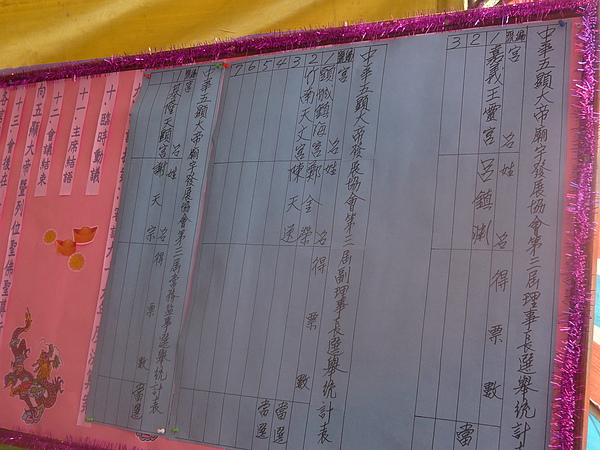 中華五顯大帝廟宇發展協會第三屆理事長選舉統計表
編號 宮名 姓名 得票數
1 嘉義王靈宮 呂鎮淵 當
2
3
中華五顯大帝廟宇發展協會第三屆副理事長選舉統計表
編號 宮名 姓名 得票數
1 頭城鎮海宮 鄭金榮 當選
2 竹南天文宮 陳天送 當選
3
4
5
6
7
中華五顯大帝廟宇發展協會第三屆常務監事選舉統計表
編號 宮名 姓名 得票數
1 天顯宮 謝天宗 當選
十、臨時動議
十一、主席結語
十二、會議結束
向五顯大帝暨列位聖佛聖
十三、會後在